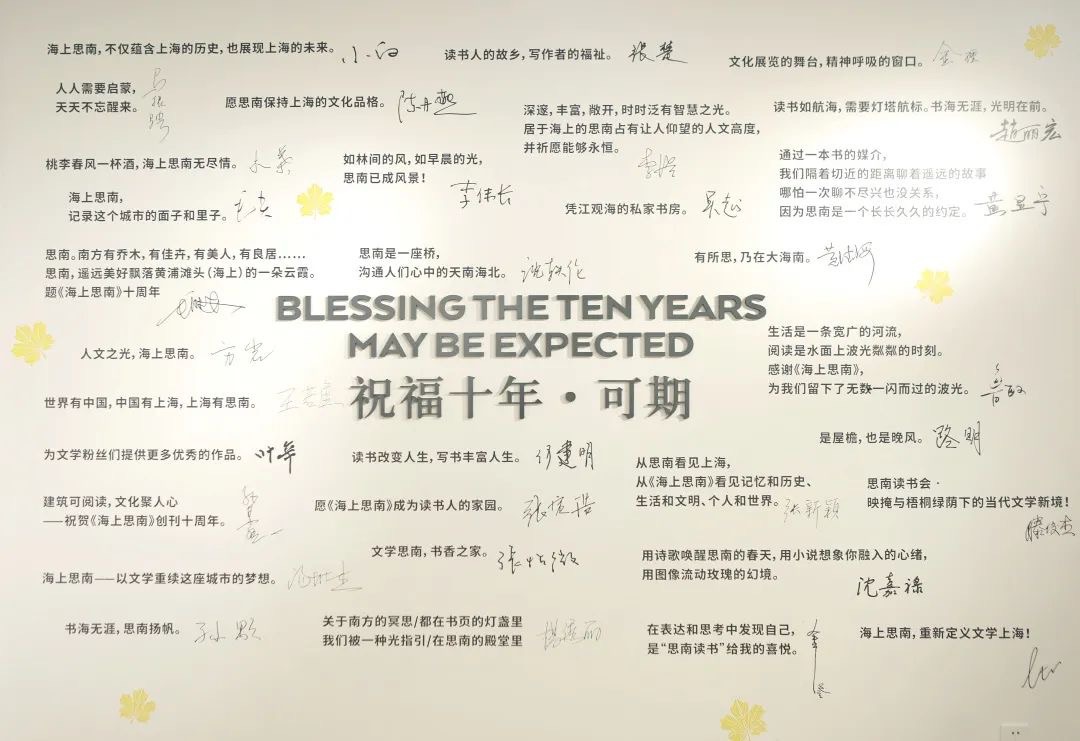 海上思南，不仅蕴含上海的历史，也展现上海的未来。 小白
读书人的故乡，写作者的福祉。 张楚
文化展览的舞台，精神呼吸的窗口。
人人需要启蒙，
天天不忘醒来。
愿思南保持上海的文化品格。 陈丹燕
深邃，丰富，敞开，时时泛有智慧之光。
居于海上的思南占有让人仰望的人文高度，
并祈愿能够永恒。
读书如航海，需要灯塔航标。书海无涯，光明在前。
赵丽宏
桃李春风一杯酒，海上思南无尽情。
如林间的风，如早晨的光，
思南已成风景！
李伟长
通过一本书的媒介，
我们隔着切近的距离聊着遥远的故事
哪怕一次聊不尽兴也没关系，
因为思南是一个长长久久的约定。 黄昱宁
海上思南，
记录这个城市的面子和里子。
凭江观海的私家书房。 吴越
思南。南方有乔木，有佳卉，有美人，有良居……
思南，遥远美好飘落黄浦滩头（海上）的一朵云霞。
题《海上思南》十周年
思南是一座桥，
沟通人们心中的天南海北。 沈轶伦
有所思，乃在大海南。
BLESSING THE TEN YEARS
MAY BE EXPECTED
祝福十年·可期
人文之光，海上思南。 方岩
生活是一条宽广的河流，
阅读是水面上波光粼粼的时刻。
感谢《海上思南》，
为我们留下了无数一闪而过的波光。 鲁敏
世界有中国，中国有上海，上海有思南。
是屋檐，也是晚风。 路明
为文学粉丝们提供更多优秀的作品。 叶辛
读书改变人生，写书丰富人生。 何建明
从思南看见上海，
从《海上思南》看见记忆和历史、
生活和文明、个人和世界。 张新颖
思南读书会·
映掩与梧桐绿荫下的当代文学新境！
滕俊杰
建筑可阅读，文化聚人心
——祝贺《海上思南》创刊十周年。
愿《海上思南》成为读书人的家园。
文学思南，书香之家。 张怡微
用诗歌唤醒思南的春天，用小说想象你融入的心绪，
用图像流动玫瑰的幻境。
沈嘉禄
海上思南——以文学重续这座城市的梦想。
书海无涯，思南扬帆。 孙颙
关于南方的冥思/都在书页的灯盏里
我们被一种光指引/在思南的殿堂里
杨绣丽
在表达和思考中发现自己，
是“思南读书”给我的喜悦。
海上思南，重新定义文学上海！